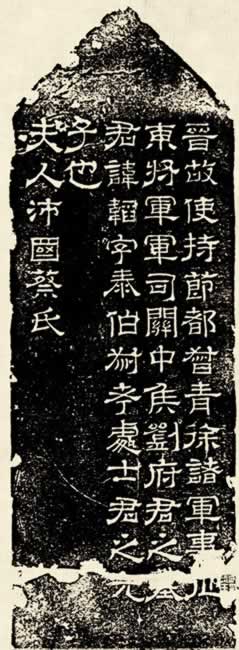 晉故使持節都督青徐諸軍事征
東將軍軍司關中侯劉府君之墓
君諱韜字泰伯列考處士君之元
子也
夫人沛國蔡氏